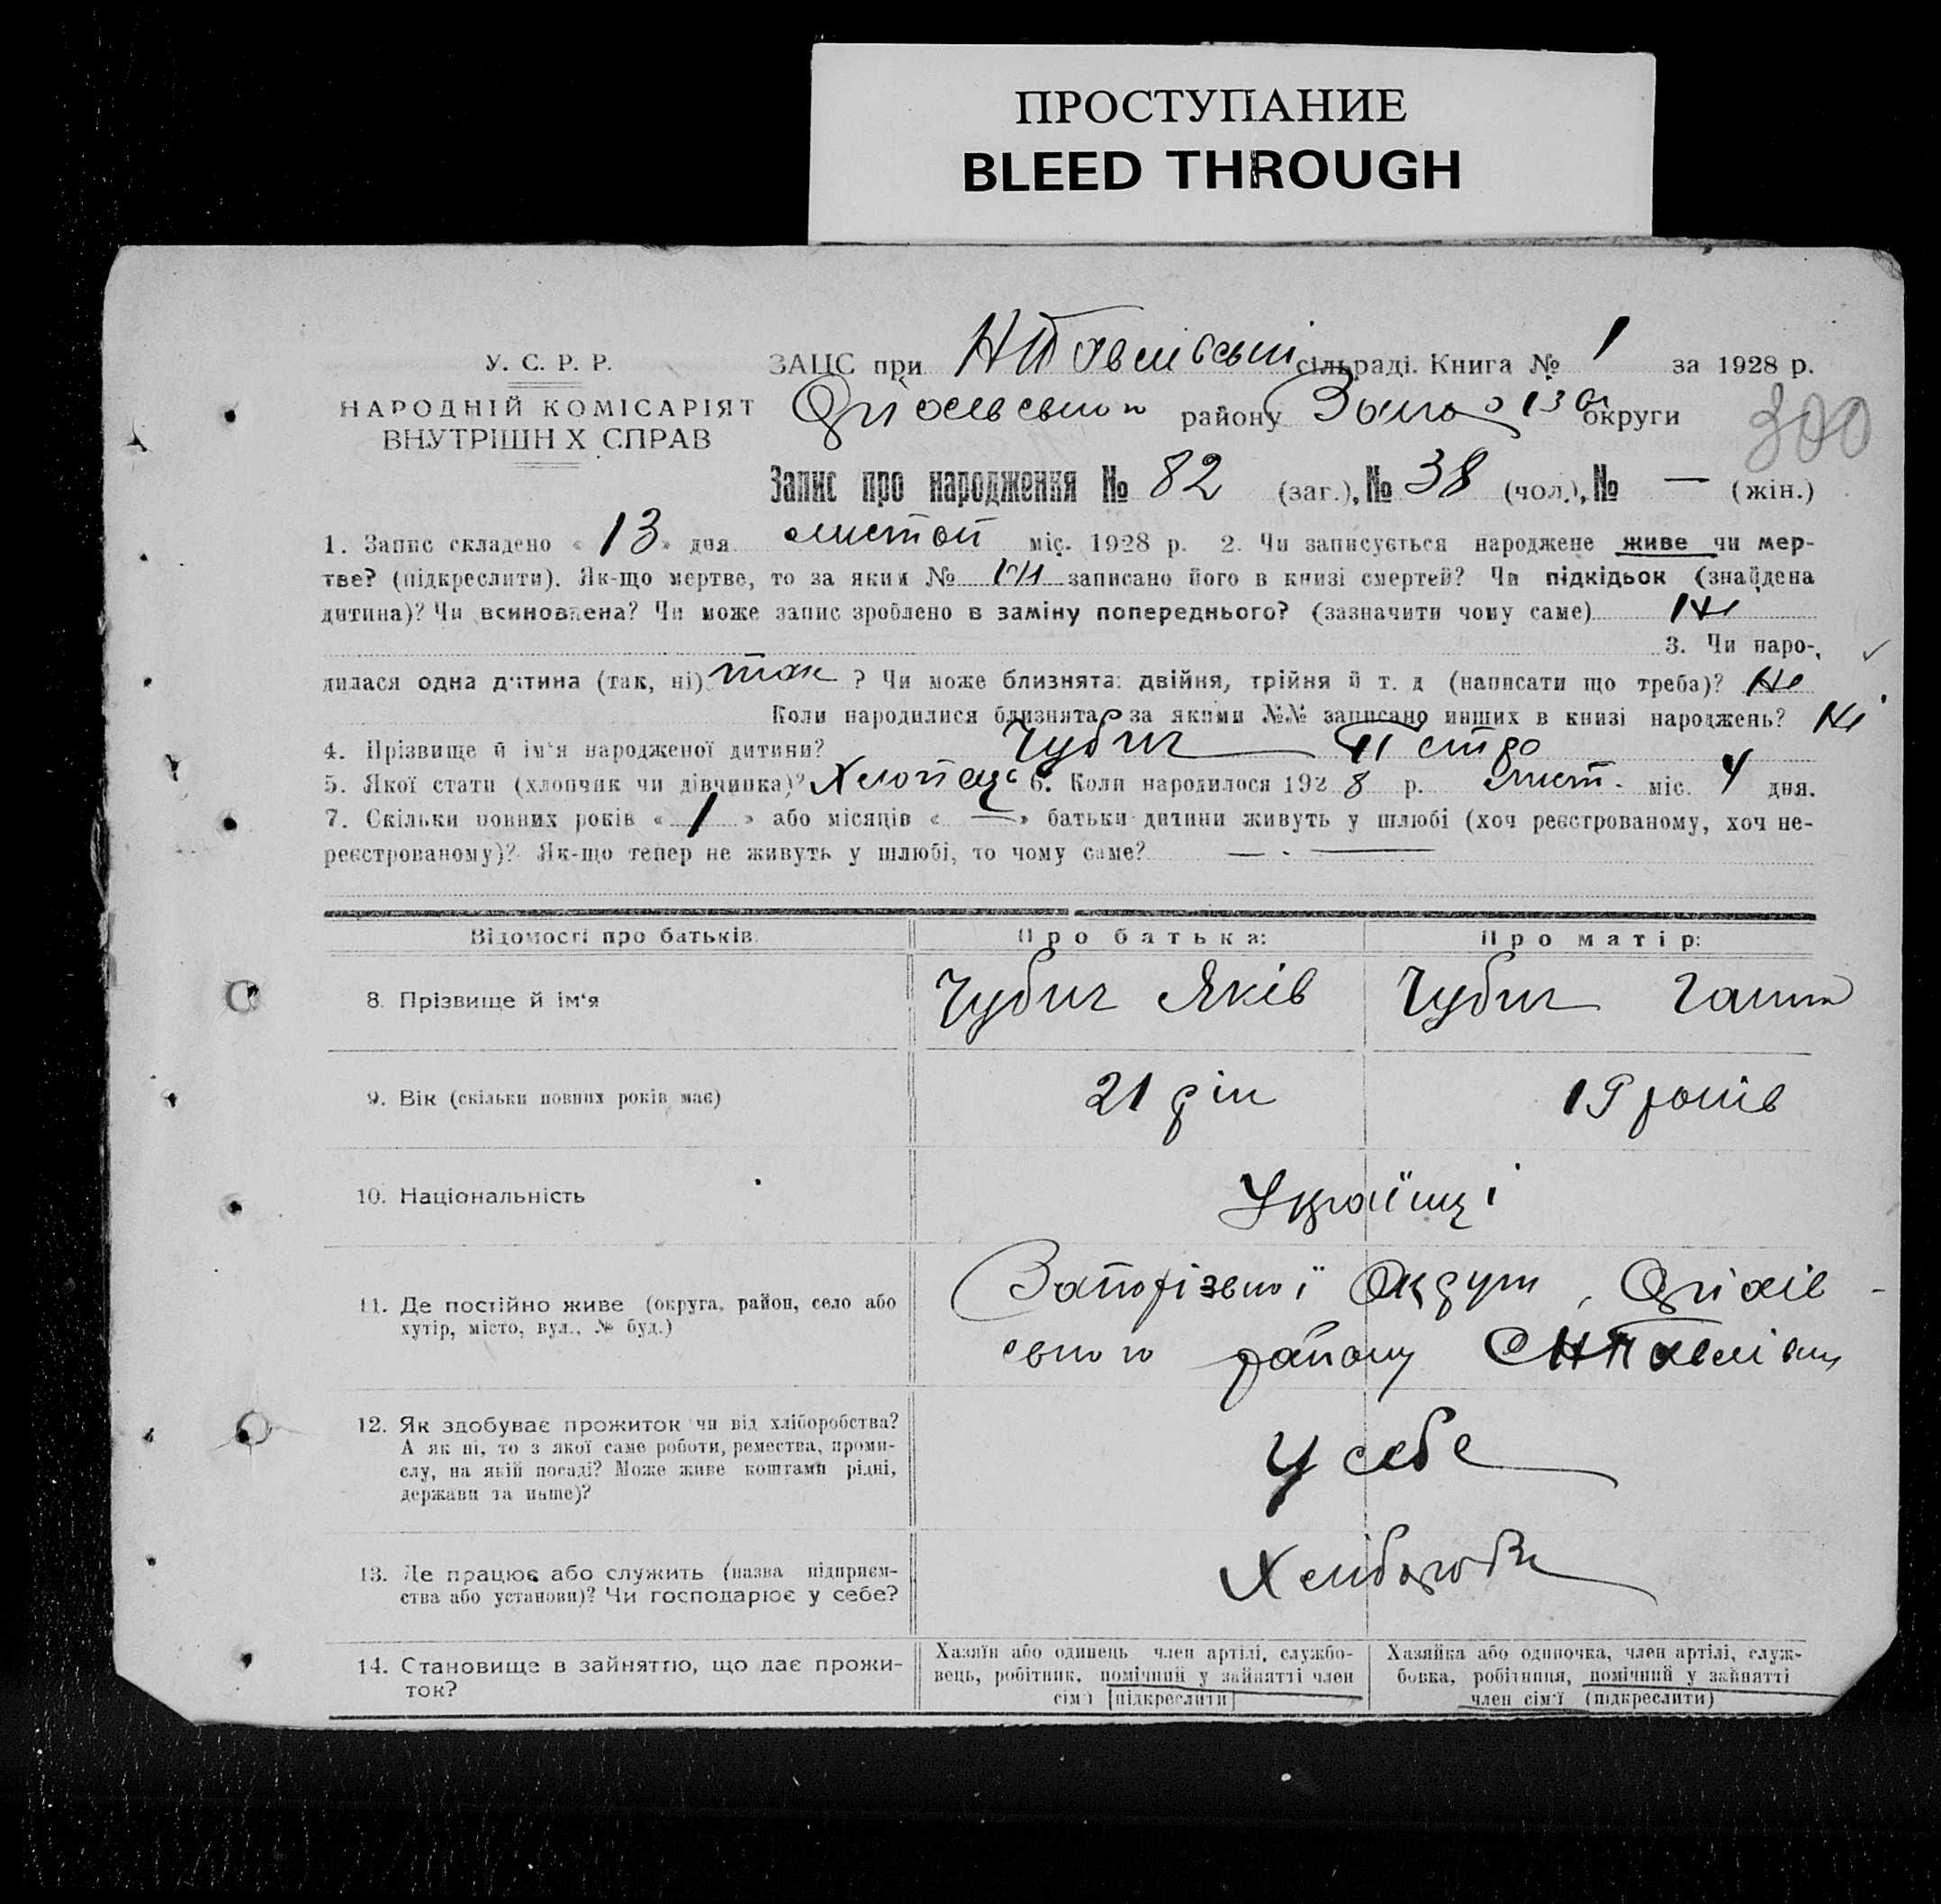 ПРОСТУПАНИЕ
BLEED THROUGH
У. С. Р. Р.
НАРОДНІЙ КОМІСАРІЯТ
ВНУТРІШН Х СПРАВ
ЗАЦС при НПавлівській сільраді. Книга № 1 за 1928 р.
Оріхівського району округи
300
Запис про народження № 82 (заг.), № 38 (чол.), № — (жін.)
1. Запис складено « 13 » дня листоп міс. 1928 р. 2. Чи записується народжене живе чи мер-
тве? (підкреслити). Як-що мертве, то за яким № записано його в книзі смертей? Чи підкідьок (знайдена
дитина)? Чи всиновлена? Чи може запис зроблено в заміну попереднього? (зазначити чому саме) Ні
3. Чи наро-
дилася одна дитина (так, ні) так ? Чи може близнята: двійня, трійня й т. д (написати що треба)? Ні
Коли народилися близнята, за якими №№ записано инших в книзі народжень? Ні
4. Прізвище й ім'я народженої дитини? Чубич Петро
5. Якої стати (хлопчик чи дівчинка)? Хлопець 6. Коли народилося 192 8 р. лист. міс. 4 дня.
7. Скільки повних років « 1 » або місяців « — » батьки дитини живуть у шлюбі (хоч реєстрованому, хоч не-
реєстрованому)? Як-що тепер не живуть у шлюбі, то чому саме? —
Відомості про батьків. Про батька: Про матір:
8. Прізвище й ім'я Чубич Яків Чубич Ганна
9. Вік (скільки повних років має) 21 рік 19 років
10. Національність Українці
11. Де постійно живе (округа, район, село або
хутір, місто, вул., № буд.)
Запорізької Округи, Оріхів-
ського району С НПавлівки
12. Як здобуває прожиток чи від хліборобства?
А як ні, то з якої саме роботи, ремества, проми-
слу, на якій посаді? Може живе коштами рідні,
держави та инше)?
У себе
13. Де працює або служить (назва підприєм-
ства або установи)? Чи господарює у себе?
Хлібороби
14. Становище в зайняттю, що дає прожи-
ток?
Хазяїн або одинець член артілі, службо-
вець, робітник, помічний у зайнятті член
сім'ї [підкреслити]
Хазяйка або одиночка, член артілі, служ-
бовка, робітниця, помічний у зайнятті
член сім'ї (підкреслити)